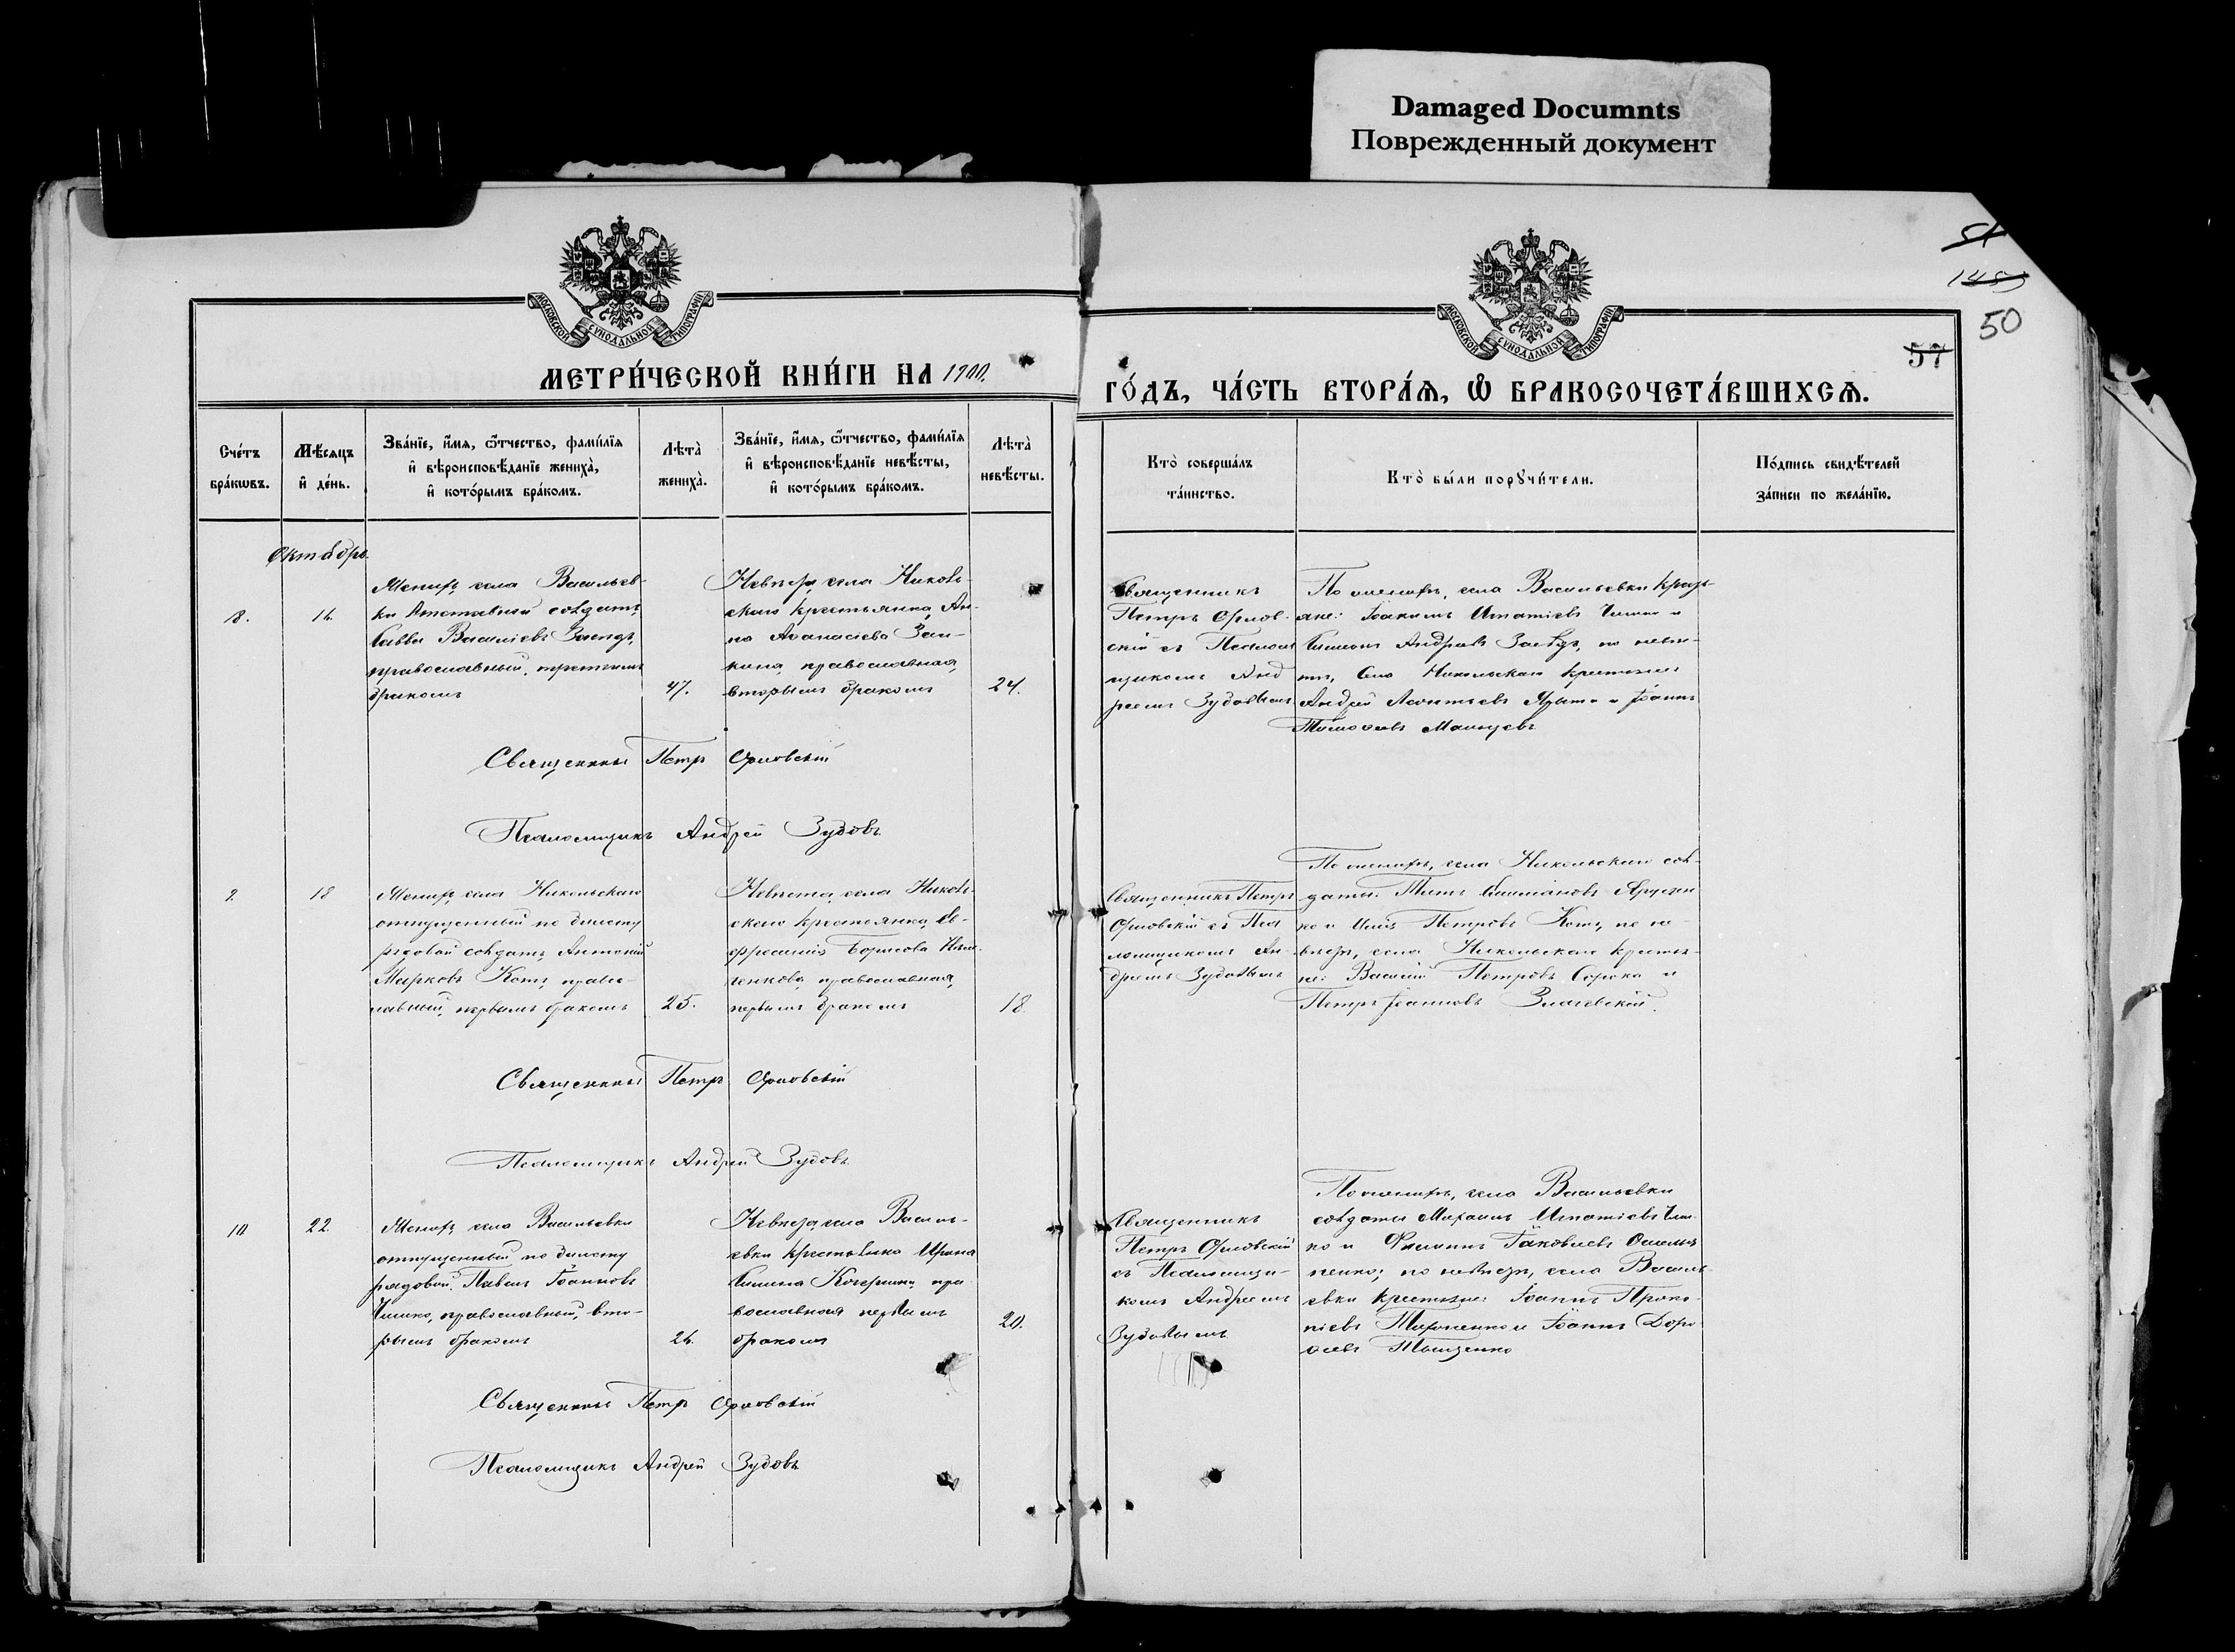 Damaged Documnts
Поврежденный документ
51
50
57
МОСКОВСКОЙ СУНОДАЛЬНОЙ ТИПОГРАФІИ
МОСКОВСКОЙ СУНОДАЛЬНОЙ ТИПОГРАФІИ
МЕТРИ́ЧЕСКОЙ КНИ́ГИ НА 1900.
ГО́ДЪ, ЧА́СТЬ ВТОРА́Я, Ѡ БРАКОСОЧЕТА́ВШИХСѦ.
Сче́тъ
бра́кѡвъ.
Мѣ́сѧцъ
и҆ де́нь.
Зва́нїе, и҆́мѧ, ѻ҆́тчество, фами́лїѧ
и҆ вѣроисповѣ́данїе жениха̀,
и҆ кото́рымъ бра́комъ.
Лѣта̀
жениха̀.
Зва́нїе, и҆́мѧ, ѻ҆́тчество, фами́лїѧ
и҆ вѣроисповѣ́данїе невѣ́сты,
и҆ кото́рымъ бра́комъ.
Лѣта̀
невѣ́сты.
Кто̀ соверша́лъ
та́инство.
Кто̀ бы́ли порꙋчи́тели.
По́дпись свидѣ́телей
за́писи по жела́нїю.
Октябрь.
8.
14.
Женихъ, села Васильев-
ки Отставной солдатъ,
Савва Василіевъ Заецъ,
православный, третьимъ
бракомъ
47.
Невѣста, села Николь-
скаго крестьянка, Ан-
на Аѳанасіева Заи-
кина, православная,
вторымъ бракомъ
24.
Священникъ
Петръ Орлов-
скій съ Псалом
щикомъ Анд
реемъ Зудовымъ
По женихѣ, села Васильевки крестья-
яне: Іоакимъ Игнатіевъ и
Симеонъ Андреевъ Заецъ, по невѣс-
тѣ, села Никольскаго крестьяне
Андрей Леонтьевъ и Іоаннъ
Тимоѳеевъ
Священникъ Петръ Орловскій
Псаломщикъ Андрей Зудовъ
9.
18
Женихъ, села Никольскаго
отпущенный по билету
рядовой солдатъ, Антоній
Марковъ Котъ, правос-
лавный, первымъ бракомъ
25.
Невѣста, села Николь-
скаго крестьянка, Ев-
фросинія Борисова
православная,
первымъ бракомъ
18.
Священникъ Петръ
Орловскій съ Пса
ломщикомъ Ан-
дреемъ Зудовымъ
По женихѣ, села Никольскаго сол-
даты: Титъ
и Петровъ Котъ, по не-
вѣстѣ, села Никольскаго крестья-
не: Василій Петровъ Сорока и
Петръ Іоанновъ
Священникъ Петръ Орловскій
Псаломщикъ Андрей Зудовъ
10
22.
Женихъ, села Васильевки
отпущенный по билету
рядовой: Павелъ Іоанновъ
православный, вто-
рымъ бракомъ
24.
Невѣста села Василь-
евки крестьянка Ирина
пра
вославная первымъ
бракомъ
20.
Священникъ
Петръ Орловскій
съ Псаломщи-
комъ Андреемъ
Зудовымъ
По женихѣ, села Васильевки
солдаты Михаилъ Игнатіевъ
и Филиппъ Іаковлевъ
по невѣстѣ, села Василь-
евки крестьяне: Іоаннъ Проко-
піевъ и Іоаннъ Доро-
ѳеевъ Тыщенко
Священникъ Петръ Орловскій
Псаломщикъ Андрей Зудовъ